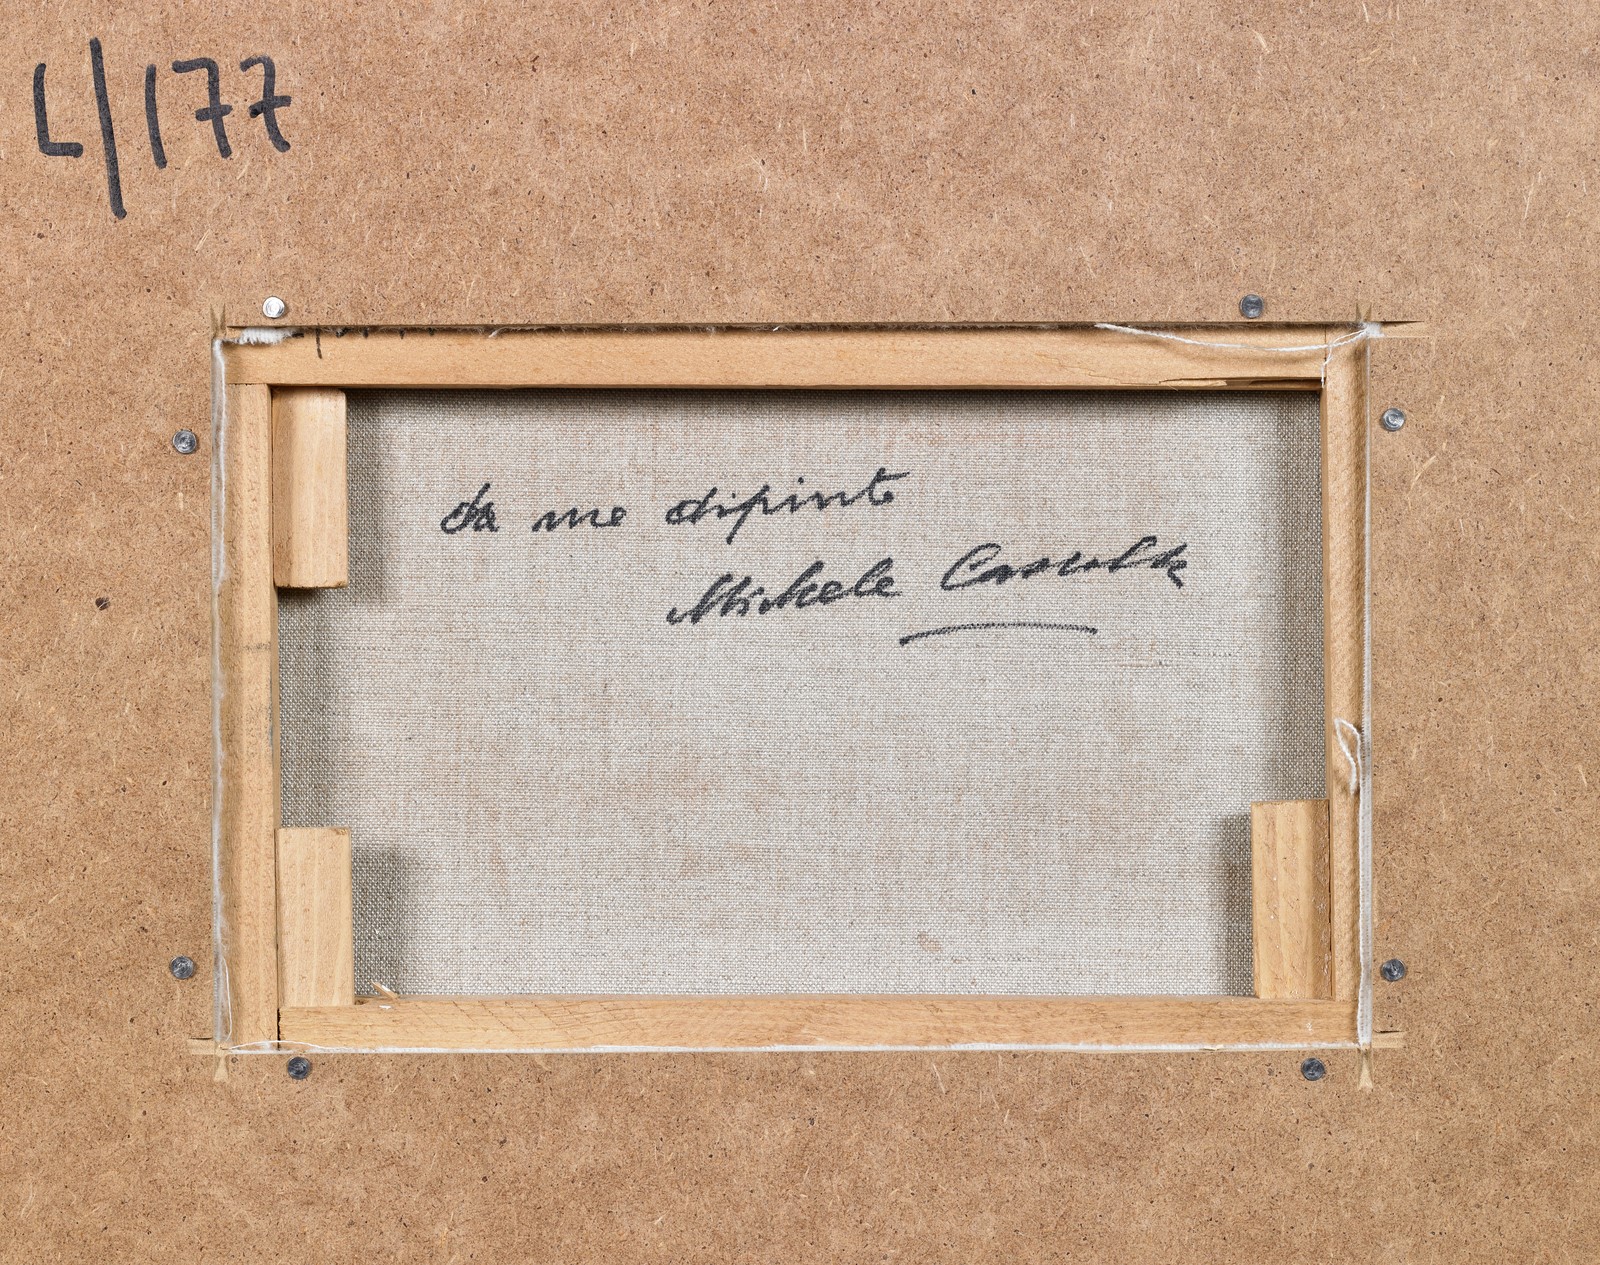 L/177
da me dipinto
Michele Cascella